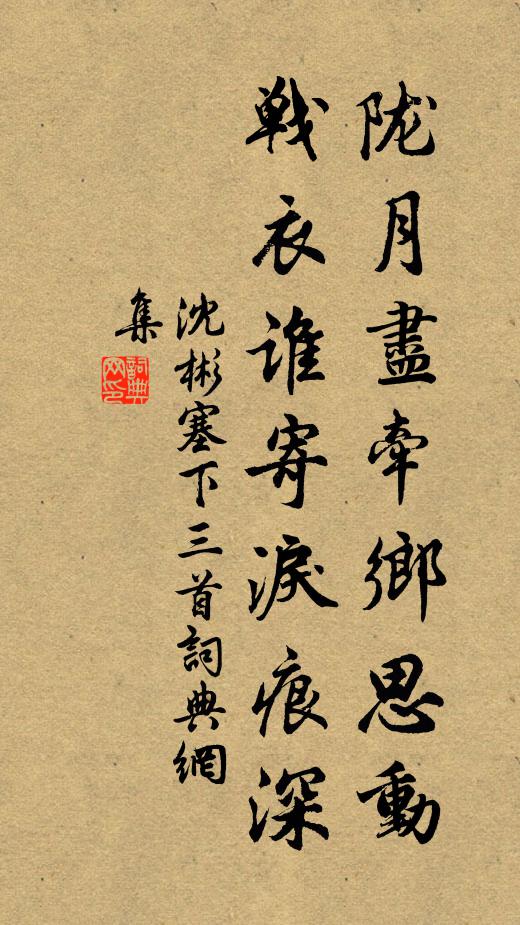 陇月盡牽鄉思動
戰衣谁寄淚痕深
沈彬塞下三首詞典網
集
詞典
网印